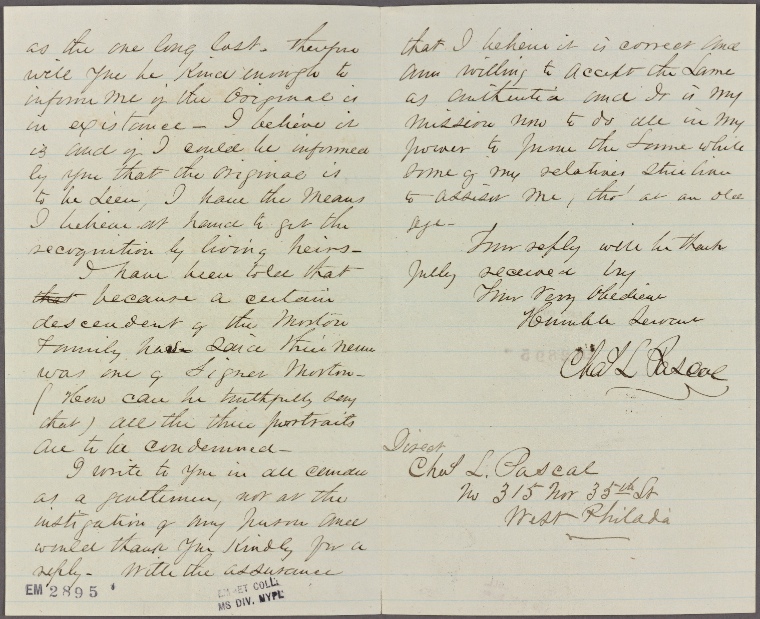 as the one long lost. therefore
will you be kind enough to
inform me if the original is
in existance — I believe it
is and if I could be informed
by you that the original is
to be seen, I have the means
I believe at hand to get the
recognition by living heirs —
I have been told that
that because a certain
descendent of the Morton
Family have said there never
was one of Signer Morton —
( How can he truthfully say
that ) all the three portraits
are to be condemned —
I write to you in all candor
as a gentlemen, not at the
instigation of any person and
would thank you kindly for a
reply — With the assurance
EM 2895
EMMET COLL.
MS DIV. NYPL
that I believe it is correct and
am willing to accept the same
as authentic and it is my
mission now to do all in my
power to prove the same while
some of my relatives still live
to assist me, tho' at an old
age —
Your reply will be thank
fully received by
Your Very Obedient
Humble Servant
Chas L Pascal
Direct
Chas L. Pascal
No 315 Nor 35th St
West Philada